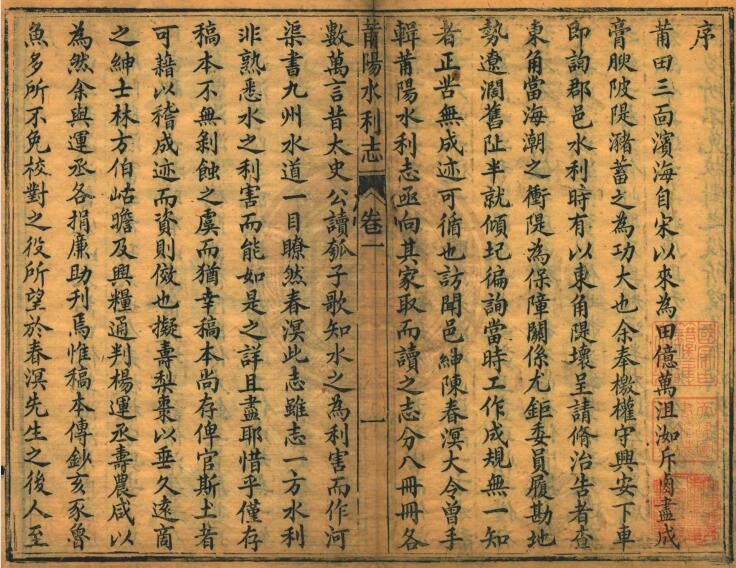 序
莆田三面濱海自宋以來為田億萬沮洳斥鹵盡成
膏腴陂隄瀦蓄之為功大也余奉檄權守興安下車
即詢郡邑水利時有以東角隄壞呈請脩治告者查
東角當海潮之衝隄為保障關係尤鉅委員履勘地
勢遼濶舊阯半就傾圮徧詢當時工作成規無一知
者正苦無成迹可循也訪聞邑紳陳春溟大令曾手
輯莆陽水利志亟向其家取而讀之志分八冊冊各
莆陽水利志 卷一 一
數萬言昔太史公讀瓠子歌知水之為利害而作河
渠書九州水道一目瞭然春溟此志雖志一方水利
非熟悉水之利害而能如是之詳且盡耶惜乎僅存
稿本不無剝蝕之虞而猶幸稿本尚存俾官斯土者
可藉以稽成迹而資則傚也擬壽梨棗以垂久遠商
之紳士林方伯岵瞻及興糧通判楊運丞壽農咸以
為然余與運丞各捐廉助刊焉惟稿本傳鈔亥豕魯
魚多所不免校對之役所望於春溟先生之後人至